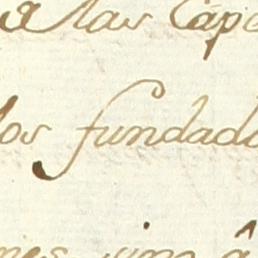 a las Capi
los fundado
nes, sino â